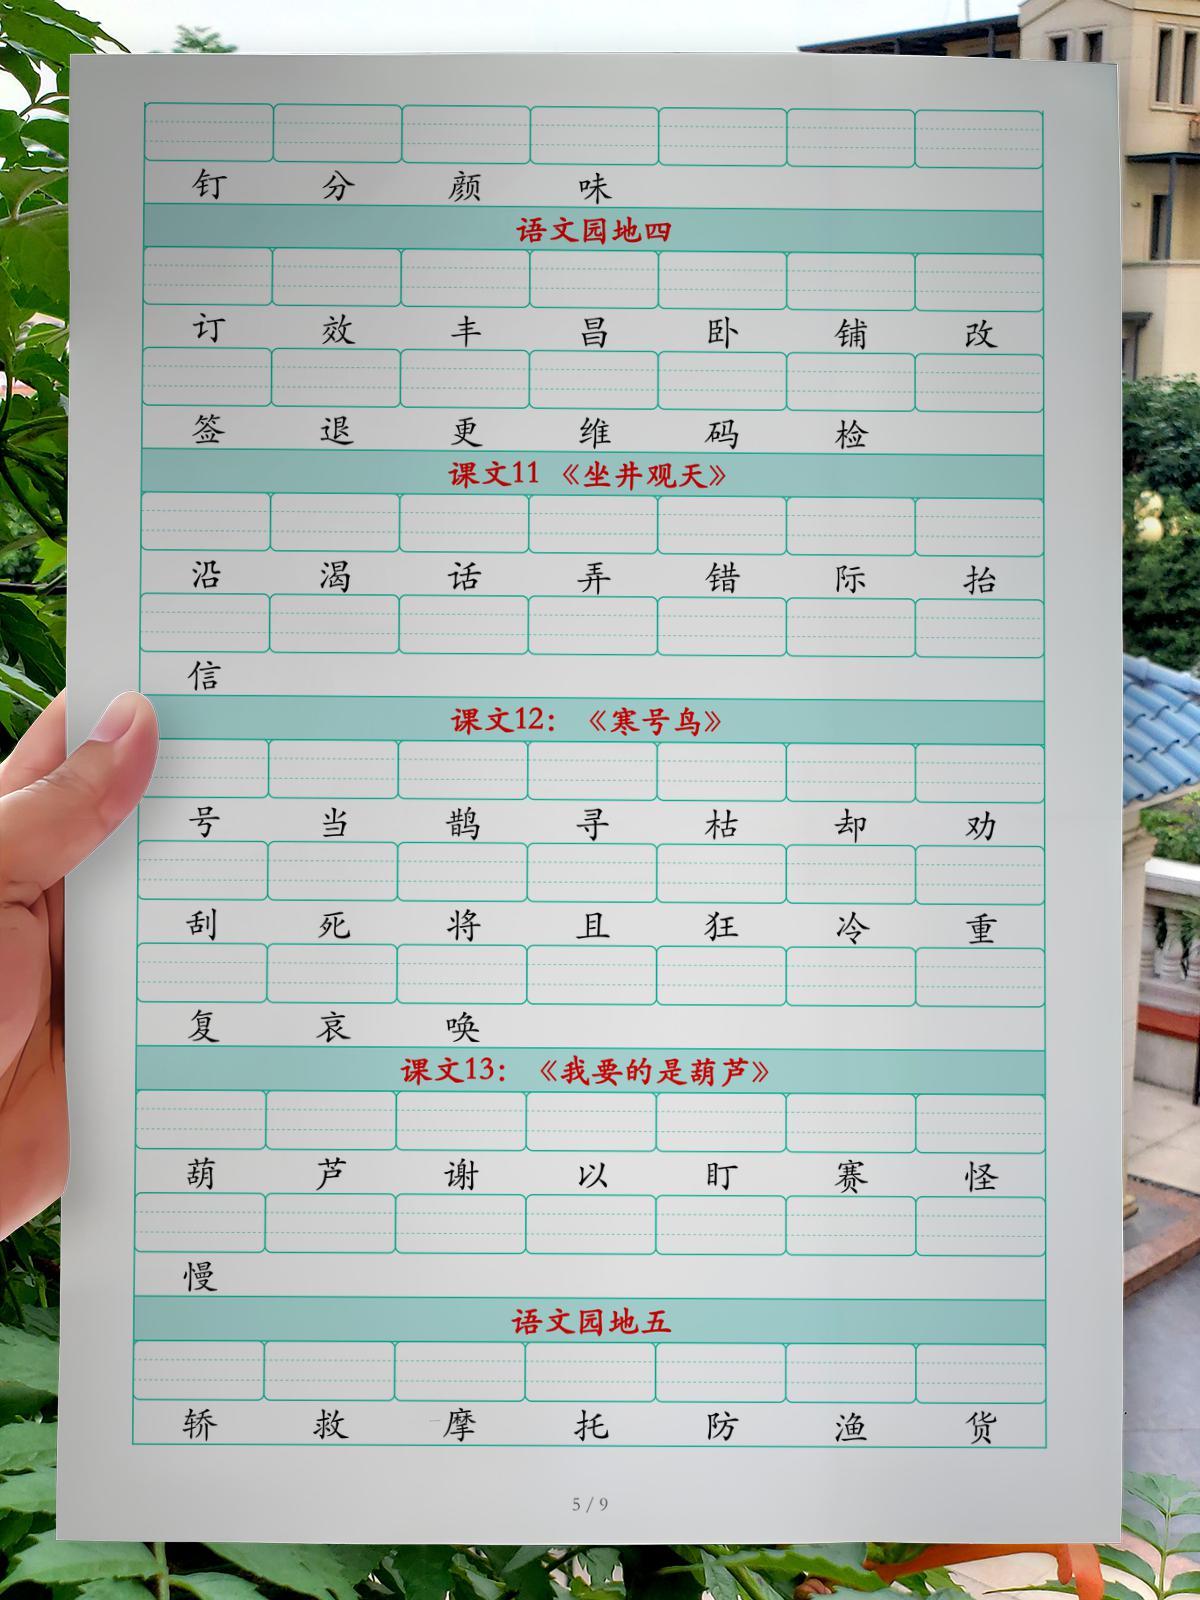 钉 分 颜 味
语文园地四
订 效 丰 昌 卧 铺 改
签 退 更 维 码 检
课文11 《坐井观天》
沿 渴 话 弄 错 际 抬
信
课文12： 《寒号鸟》
号 当 鹊 寻 枯 却 劝
刮 死 将 且 狂 冷 重
复 哀 唤
课文13： 《我要的是葫芦》
葫 芦 谢 以 盯 赛 怪
慢
语文园地五
轿 救 摩 托 防 渔 货
5 / 9